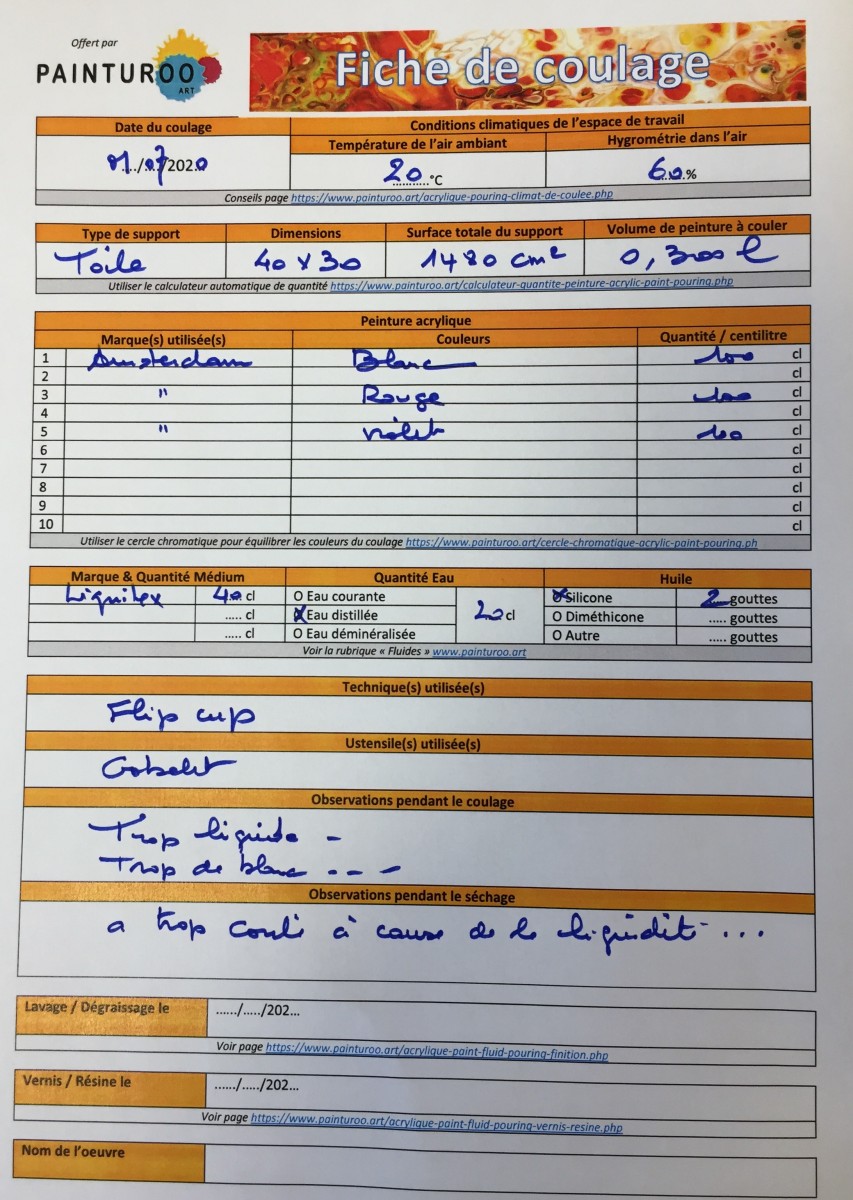 Offert par
PAINTUROO
ART
Fiche de coulage
Date du coulage
Conditions climatiques de l'espace de travail
Température de l'air ambiant
Hygrométrie dans l'air
01/07/2020
20 °C
60 %
Conseils page https://www.painturoo.art/acrylique-pouring-climat-de-coulee.php
Type de support Dimensions Surface totale du support Volume de peinture à couler
Toile 40 x 30 1480 cm² 0,300 l
Utiliser le calculateur automatique de quantité https://www.painturoo.art/calculateur-quantite-peinture-acrylic-paint-pouring.php
Peinture acrylique
Marque(s) utilisée(s) Couleurs Quantité / centilitre
1 Amsterdam Blanc 100 cl
2 cl
3 " Rouge 100 cl
4 cl
5 " violet 100 cl
6 cl
7 cl
8 cl
9 cl
10 cl
Utiliser le cercle chromatique pour équilibrer les couleurs du coulage https://www.painturoo.art/cercle-chromatique-acrylic-paint-pouring.ph
Marque & Quantité Médium Quantité Eau Huile
Liquitex 40 cl O Eau courante 20 cl X Silicone 2 gouttes
..... cl X Eau distillée O Diméthicone ..... gouttes
..... cl O Eau déminéralisée O Autre ..... gouttes
Voir la rubrique « Fluides » www.painturoo.art
Technique(s) utilisée(s)
Flip cup
Ustensile(s) utilisée(s)
Gobelet
Observations pendant le coulage
Trop liquide -
Trop de blanc - - -
Observations pendant le séchage
a trop coulé à cause de la liquidité ...
Lavage / Dégraissage le ....../...../202...
Voir page https://www.painturoo.art/acrylique-paint-fluid-pouring-finition.php
Vernis / Résine le ....../...../202...
Voir page https://www.painturoo.art/acrylique-paint-fluid-pouring-vernis-resine.php
Nom de l'oeuvre